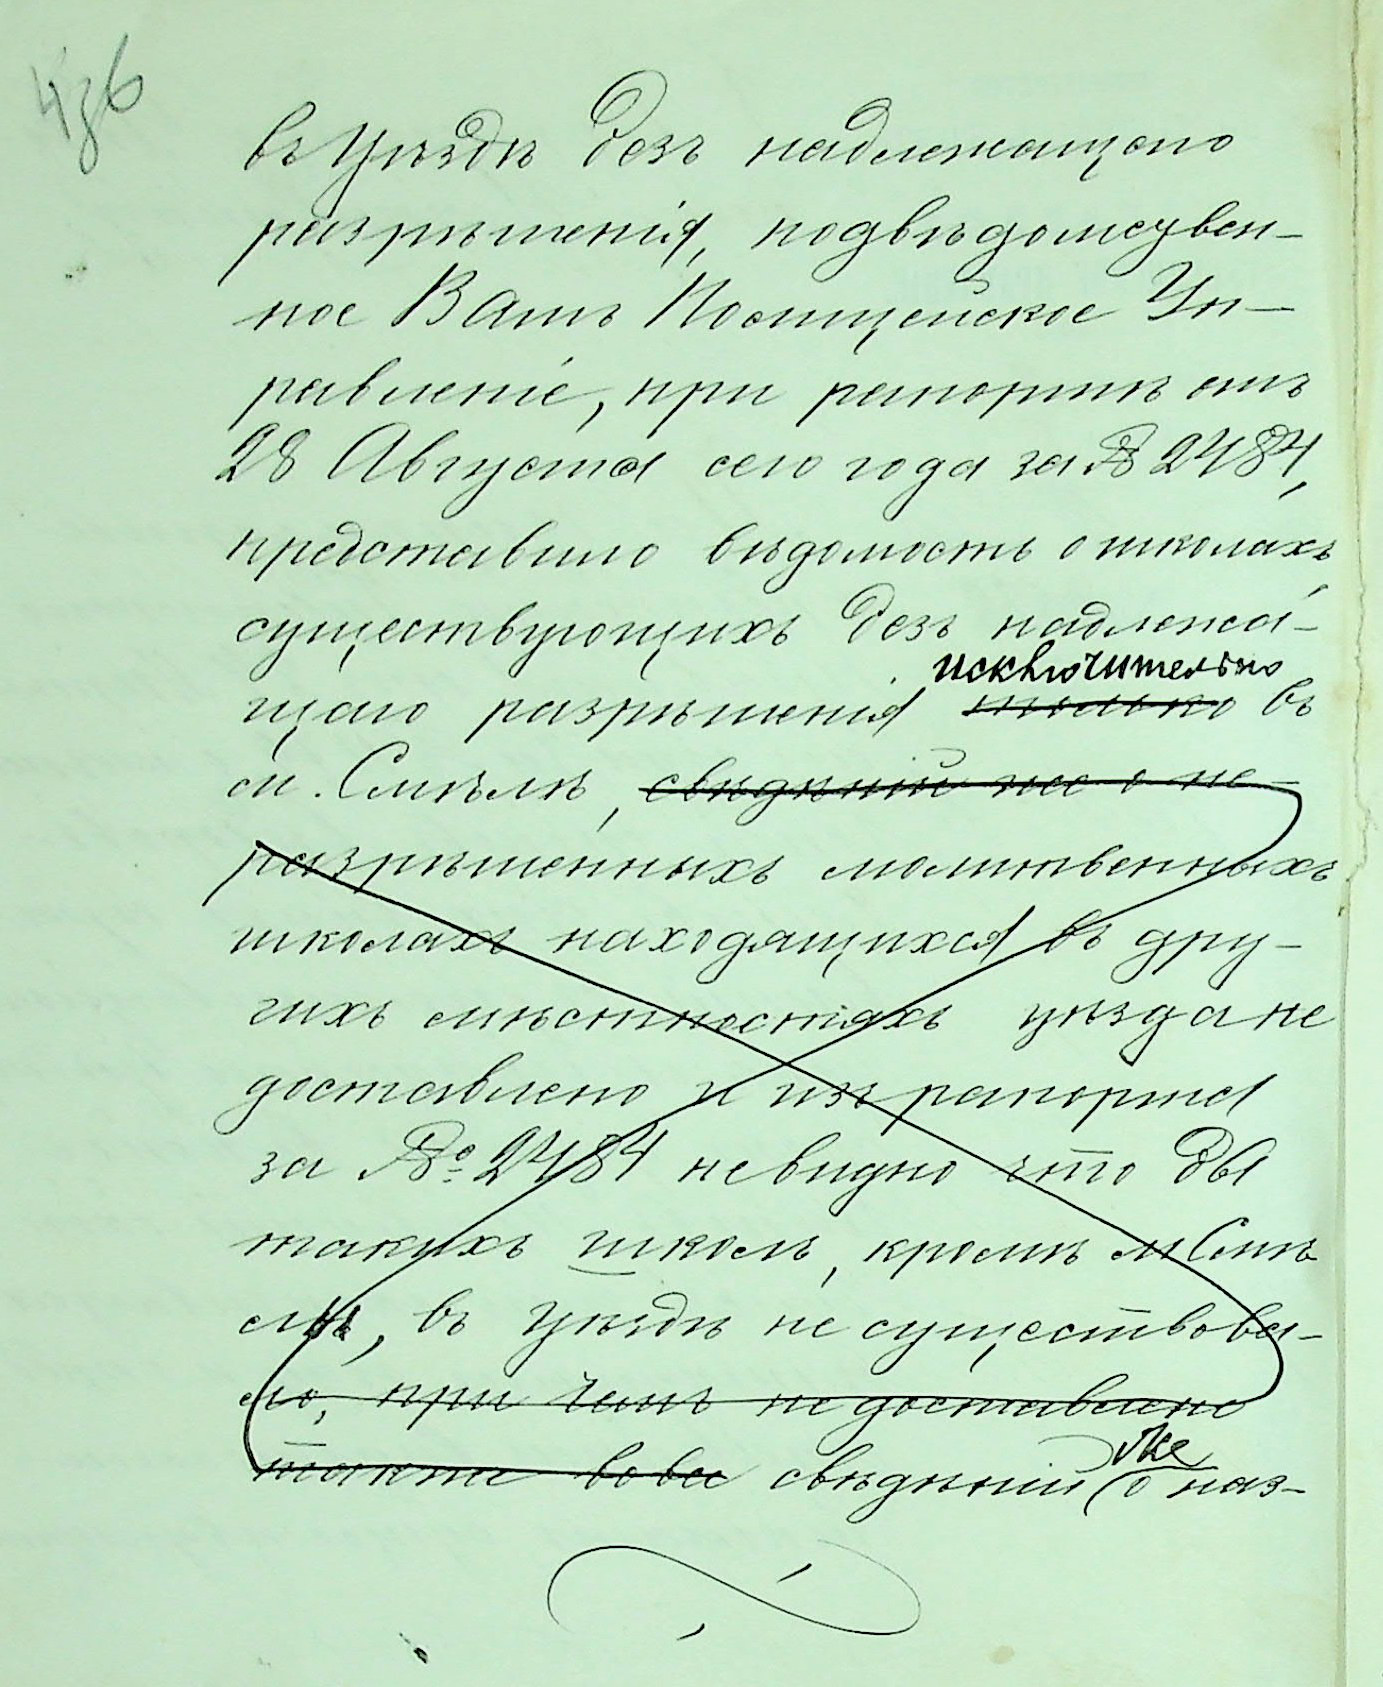 436
въ Уѣздѣ безъ надлежащаго
разрѣшенія, подвѣдомствен-
ное Вамъ Полицейское Уп-
равленіе, при рапортѣ отъ
28 Августа сего года за № 2484,
представило вѣдомость о школахъ
существующихъ безъ надлежа-
исключительно
щаго разрѣшенія только въ
м. Смѣлѣ, свѣдѣній же о не-
разрѣшенныхъ молитвенныхъ
школахъ находящихся въ дру-
гихъ мѣстностяхъ уѣзда не
доставлено и изъ рапорта
за № 2484 не видно что бы
такихъ школъ, кромѣ м Смѣ
лы, въ уѣздѣ не существова-
ло, при чемъ не доставлено
также вовсе свѣдѣній о наз-
же